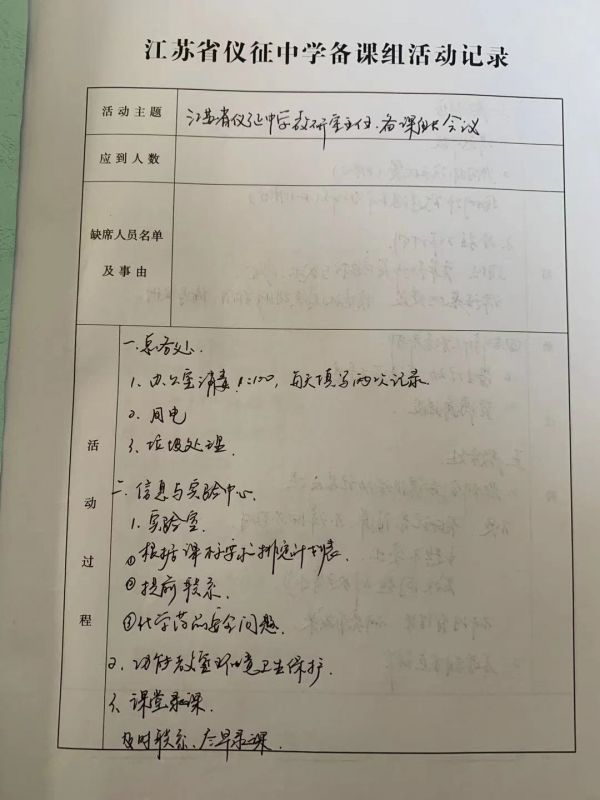 江苏省仪征中学备课组活动记录
活动主题 江苏省仪征中学教研室主任、备课组长会议
应到人数
缺席人员名单
及事由
活动过程
一、总务处.
1、办公室消毒 1:100, 每天填写两次记录.
2、用电
3、垃圾处理.
二、信息与实验中心.
1、实验室.
①根据课本要求排定计划表.
②提前联系.
③化学药品安全问题.
2、功能教室环境卫生保护.
3、课堂录课.
及时联系、尽早录课.